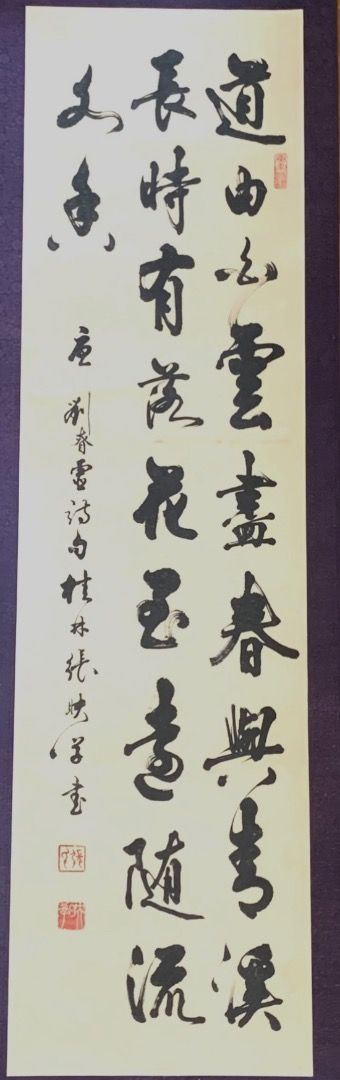 道由白雲盡春與青溪
長時有落花至遠隨流
水香
唐劉春虛詩句桂林張映學書